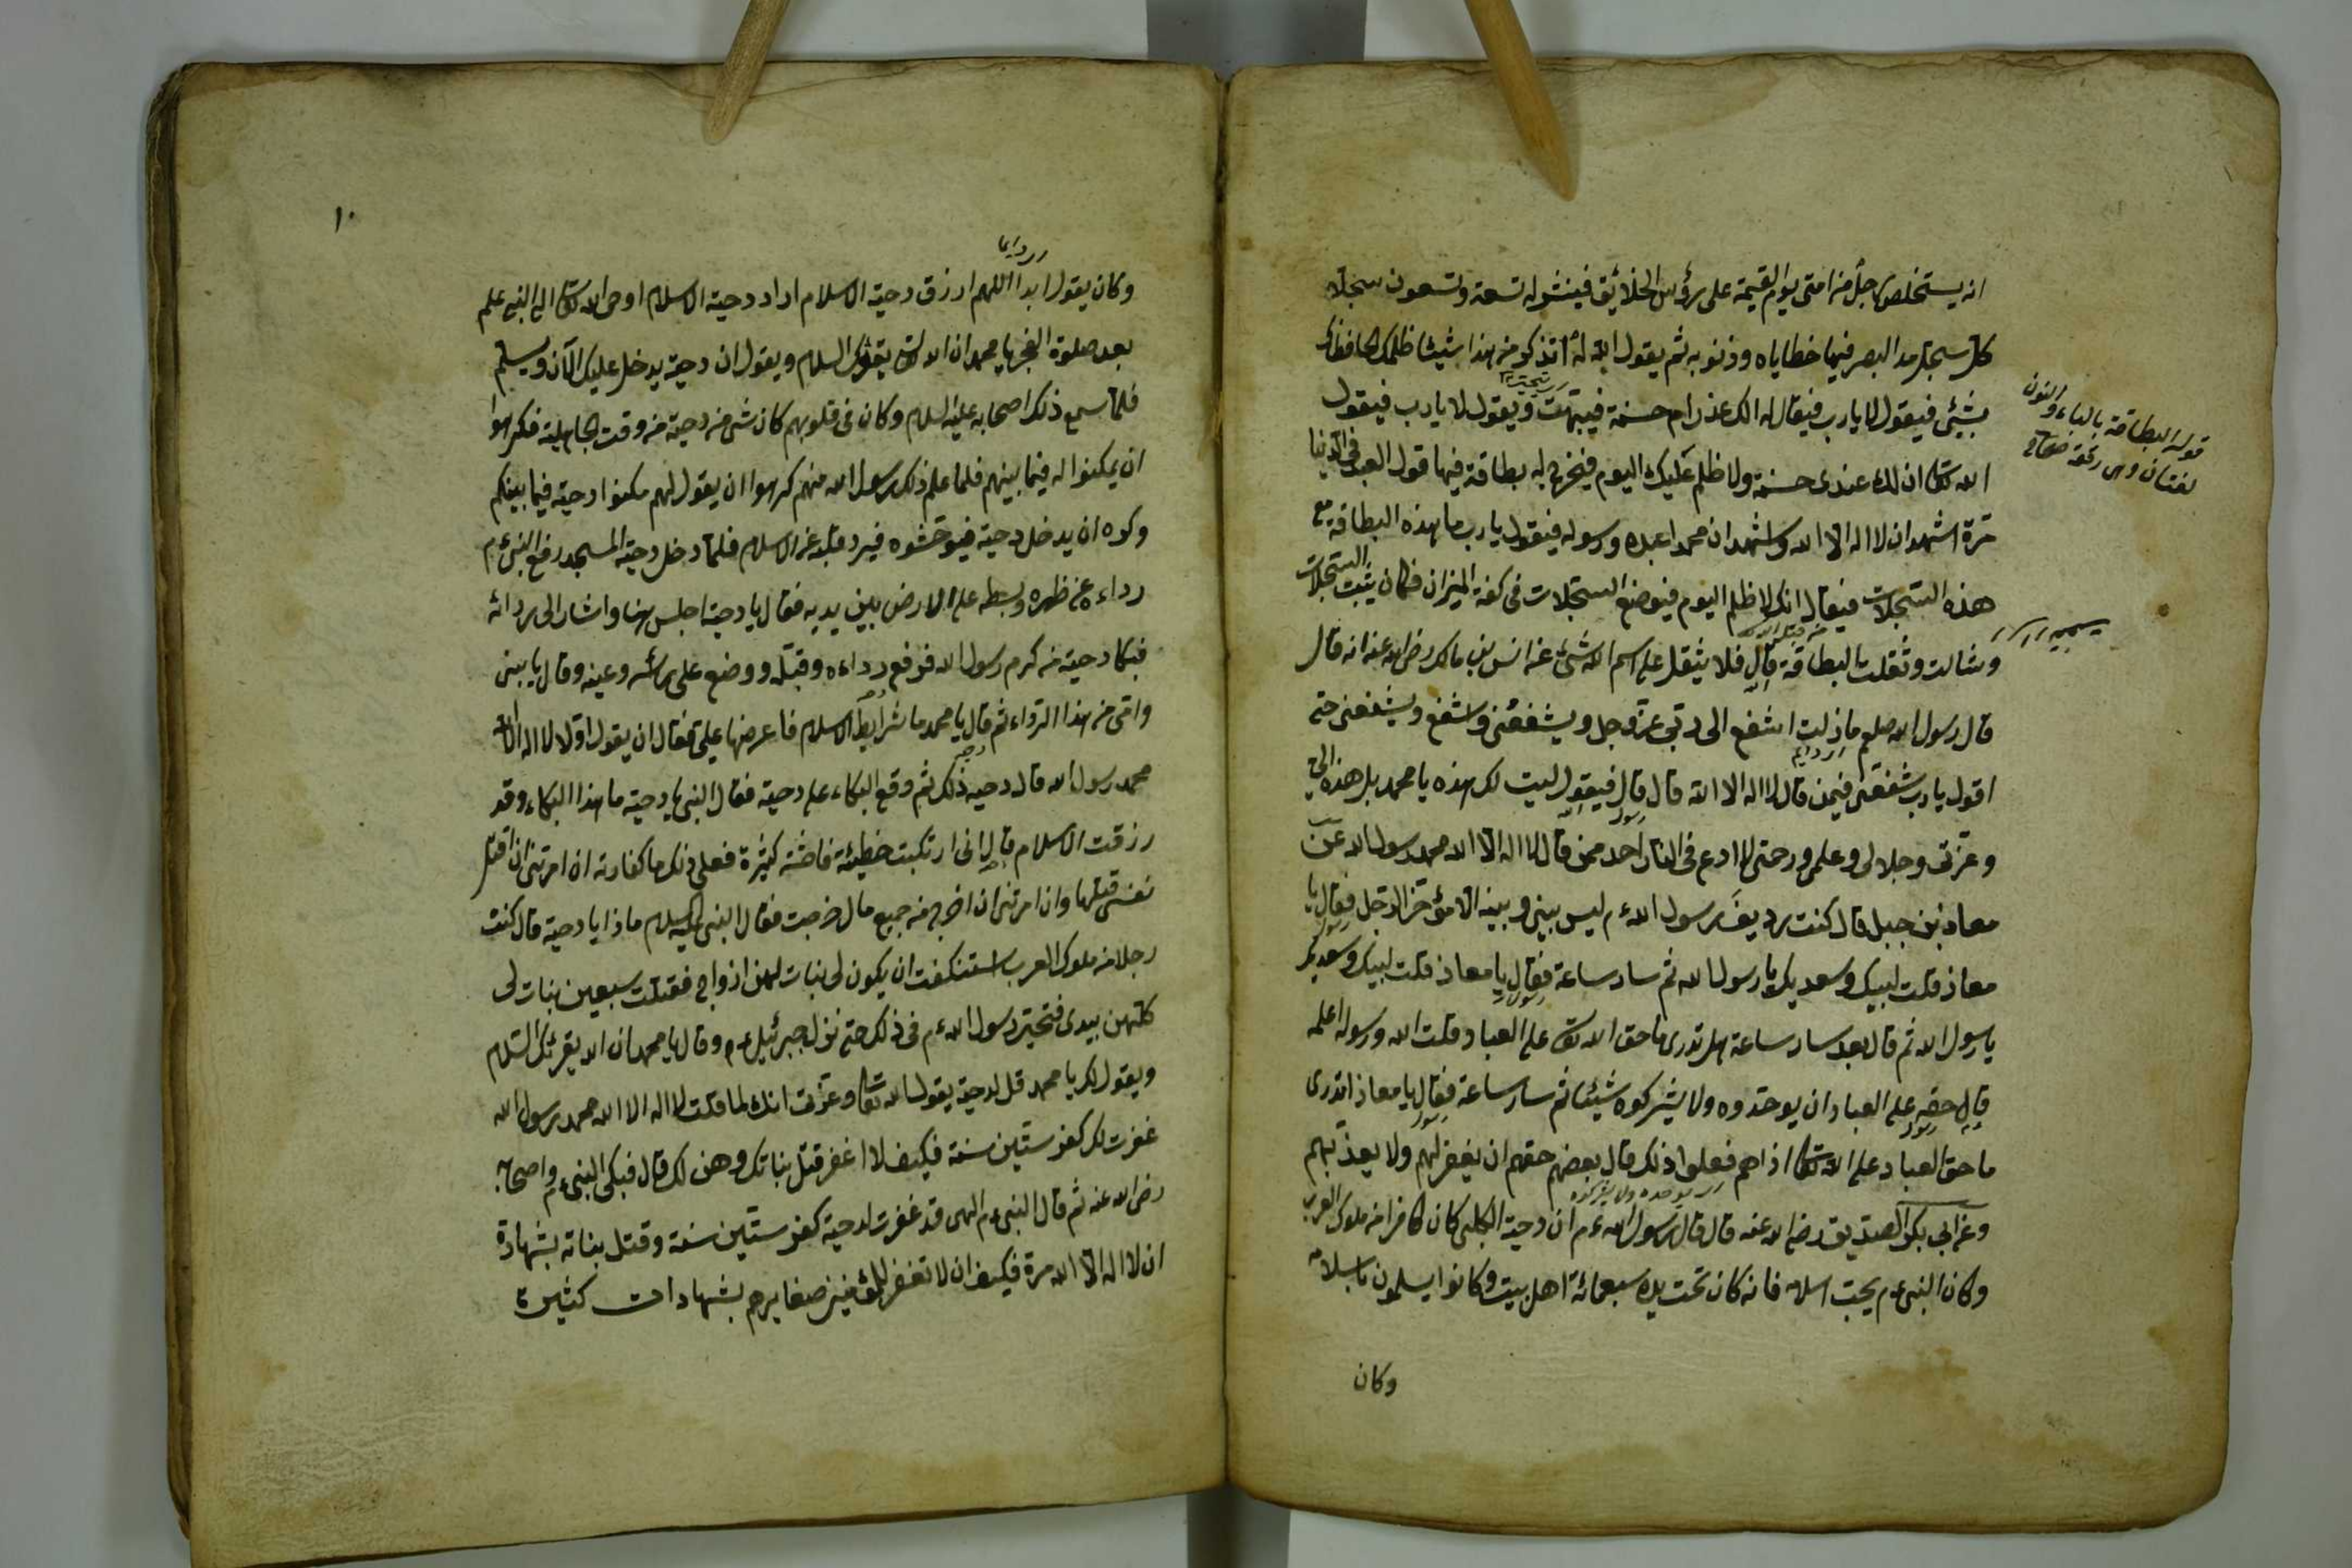 انه يستخلص رجلا من امتى يوم القيمة على رؤس الخلائق فينشر له تسعة وتسعون سجلا
كل سجل مد البصر فيها خطاياه وذنوبه ثم يقول الله له اتذكر من هذا شيئا ظلمك الحافظون
بشئ فيقول لا يا رب فيقال له الك عذر ام حسنة فيبهت ويقول لا يا رب فيقول
الله تعالى ان لك عندى حسنة ولا ظلم عليك اليوم فيخرج له بطاقة فيها قول العبد فى الدنيا
مرة اشهد ان لا اله الا الله واشهد ان محمدا عبده ورسوله فيقول يا رب ما هذه البطاقة مع
هذه السجلات فيقال انك لا ظلم اليوم فيوضع السجلات فى كفة الميزان فكان يثبت السجلات
وشالت وثقلت البطاقة قال فلا يثقل على اسم الله شئ عن انس بن مالك رضى الله عنه انه قال
قال رسول الله صلعم ما زلت اشفع الى ربى عز وجل ويشفعنى واشفع ويشفعنى حتى
اقول يا رب شفعنى فيمن قال لا اله الا الله قال قال فيقول ليت لك هذه يا محمد بل هذه الى
وعزتى وجلالى وعلمى ورحمتى لا ادع فى النار احد ممن قال لا اله الا الله محمد رسول الله عن
معاذ بن جبل قال كنت رديف رسول الله ءم ليس بينى وبينه الا مؤخر الرحل فقال يا
معاذ قلت لبيك وسعديك يا رسول الله ثم سار ساعة فقال يا معاذ قلت لبيك وسعديك
يا رسول الله ثم قال بعد سار ساعة هل تدرى ما حق الله تعالى على العباد قلت الله ورسوله اعلم
قال حقه على العباد ان يوحدوه ولا يشركوه شيئا ثم سار ساعة فقال يا معاذ اتدرى
ما حق العباد على الله تعالى اذا هم فعلوا ذلك قال بعضهم حقهم ان يغفر لهم ولا يعذبهم
وعن ابى بكر الصديق رضى الله عنه قال قال رسول الله ءم ان دحية الكلبى كان كافرا من ملوك العرب
وكان النبى ءم يحب اسلامه فانه كان تحت يده سبعمائة اهل بيت وكانوا يسلمون باسلامه
وكان
قوله البطاقة بالباء والنون
لغتان وهى رقعة
١٠
وكان يقول ابدا اللهم ارزق دحية الاسلام اراد دحية الاسلام اوحى الله تعالى الى النبى علم
بعد صلوة الفجر يا محمد ان الله تعالى يقرئك السلام ويقول ان دحية يدخل عليك الآن ويسلم
فلما سمع ذلك اصحابه عليه السلام وكان فى قلوبهم كان شئ من دحية من وقت الجاهلية فكرهوا
ان يمكنوا له فيما بينهم فلما علم ذلك رسول الله منهم كرهوا ان يقول لهم مكنوا دحية فيما بينكم
وكره ان يدخل دحية فيوحشوه فيرد قلبه عن الاسلام فلما دخل دحية المسجد رفع النبى ءم
رداءه عن ظهره وبسطه على الارض بين يديه فقال يا دحية اجلس هنا واشار الى ردائه
فبكا دحية من كرم رسول الله فرفع رداءه وقبله ووضع على رأسه وعينه وقال يا بينى
وامى من هذا الرداء ثم قال يا محمد ما شرايط الاسلام فاعرضها على فقال ان يقول اولا لا اله الا الله
محمد رسول الله قال دحيه ذلك ثم وقع البكاء على دحية فقال النبى يا دحية ما هذا البكاء وقد
رزقت الاسلام قال انى ارتكبت خطيئة فاحشة كثيرة فعلى ذلك ما كفارته ان امرتنى ان اقتل
نفسى قتلها وان امرتنى ان اخرج من جميع مالى خرجت فقال النبى عليه السلام ماذا يا دحية قال كنت
رجلا من ملوك العرب استنكفت ان يكون لى بنات لهن ازواج فقتلت سبعين بنات لى
كلهن بيدى فتحير رسول الله ءم فى ذلك حتى نزل جبرئيل ءم وقال يا محمد ان الله يقرئك السلام
ويقول لك يا محمد قل لدحية يقول الله تعالى وعزتى انك لما قلت لا اله الا الله محمد رسول الله
غفرت لك كفر ستين سنة فكيف لا اغفر قتل بناتك وهن لك قال فبكى النبى ءم واصحابه
رضى الله عنه ثم قال النبى ءم الهى قد غفرت لدحية كفر ستين سنة وقتل بناته بشهادة
ان لا اله الا الله مرة فكيف ان لا تغفر للمؤمنين صغايرهم بشهادات كثيرة